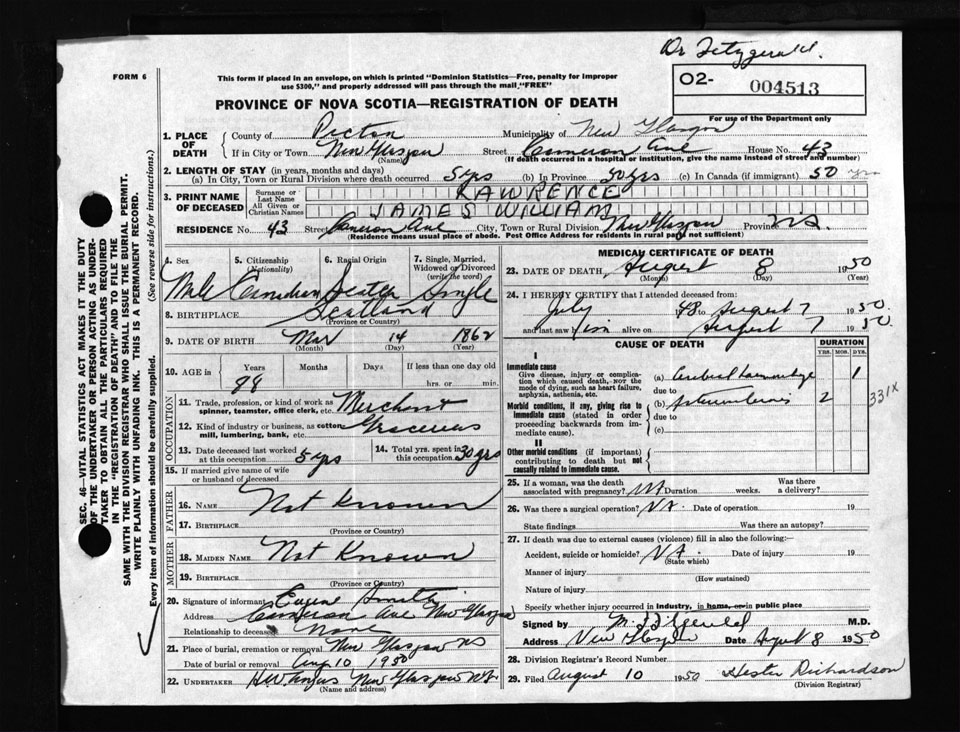 Dr Fitzgerald.
FORM 6
This form if placed in an envelope, on which is printed "Dominion Statistics—Free, penalty for improper
use $300," and properly addressed will pass through the mail "FREE"
O2- 004513
For use of the Department only
PROVINCE OF NOVA SCOTIA—REGISTRATION OF DEATH
1. PLACE OF DEATH
County of Pictou Municipality of New Glasgow
If in City or Town New Glasgow (Name) Street Cameron Ave House No. 43
(If death occurred in a hospital or institution, give the name instead of street and number)
2. LENGTH OF STAY (in years, months and days)
(a) In City, Town or Rural Division where death occurred 5 yrs (b) In Province 50 yrs (c) In Canada (if immigrant) 50 yrs
3. PRINT NAME OF DECEASED
Surname or Last Name LAWRENCE
All Given or Christian Names JAMES WILLIAM
RESIDENCE No. 43 Street Cameron Ave City, Town or Rural Division New Glasgow Province N.S.
(Residence means usual place of abode. Post Office Address for residents in rural parts not sufficient)
4. Sex 5. Citizenship (Nationality) 6. Racial Origin 7. Single, Married, Widowed or Divorced (write the word)
Male Canadian Scotch Single
8. BIRTHPLACE Scotland
(Province or Country)
9. DATE OF BIRTH Mar 14 1862
(Month) (Day) (Year)
10. AGE in Years Months Days If less than one day old
88 hrs. or min.
OCCUPATION
11. Trade, profession, or kind of work as spinner, teamster, office clerk, etc. Merchant
12. Kind of industry or business, as cotton mill, lumbering, bank, etc. Groceries
13. Date deceased last worked at this occupation 5 yrs 14. Total yrs. spent in this occupation 30 yrs
15. If married give name of wife or husband of deceased
FATHER
16. NAME Not Known
17. BIRTHPLACE
(Province or Country)
MOTHER
18. MAIDEN NAME Not Known
19. BIRTHPLACE
(Province or Country)
20. Signature of informant Eugene Smith
Address Cameron Ave New Glasgow
Relationship to deceased None
21. Place of burial, cremation or removal New Glasgow NS
Date of burial or removal Aug 10 1950
22. UNDERTAKER New Glasgow N.S.
(Name and address)
MEDICAL CERTIFICATE OF DEATH
23. DATE OF DEATH August 8 1950
(Month) (Day)
24. I HEREBY CERTIFY that I attended deceased from:
July 48 to August 7 1950
and last saw him alive on August 7 1950.
CAUSE OF DEATH
DURATION
YRS. MOS. DYS.
I
Immediate cause
Give disease, injury or complication which caused death, NOT the mode of dying, such as heart failure, asphyxia, asthenia, etc.
(a) Cerebral haemorrhage 1
due to
Morbid conditions, if any, giving rise to immediate cause (stated in order proceeding backwards from immediate cause).
(b) 2
due to
(c)
331X
II
Other morbid conditions (if important) contributing to death but not causally related to immediate cause.
25. If a woman, was the death associated with pregnancy? Duration weeks. Was there a delivery?
26. Was there a surgical operation? NA. Date of operation 19
State findings Was there an autopsy?
27. If death was due to external causes (violence) fill in also the following:
Accident, suicide or homicide? NA. Date of injury 19
(State which)
Manner of injury
(How sustained)
Nature of injury
Specify whether injury occurred in industry, in home, or in public place
Signed by M. Fitzgerald M.D.
Address New Glasgow Date August 8 1950
28. Division Registrar's Record Number
29. Filed August 10 1950 Hester Richardson
(Division Registrar)
SEC. 46—VITAL STATISTICS ACT MAKES IT THE DUTY
OF THE UNDERTAKER OR PERSON ACTING AS UNDERTAKER TO OBTAIN ALL THE PARTICULARS REQUIRED
IN THE "REGISTRATION OF DEATH" AND TO FILE THE
SAME WITH THE DIVISION REGISTRAR WHO SHALL ISSUE THE BURIAL PERMIT.
WRITE PLAINLY WITH UNFADING INK. THIS IS A PERMANENT RECORD.
Every item of information should be carefully supplied. (See reverse side for instructions.)